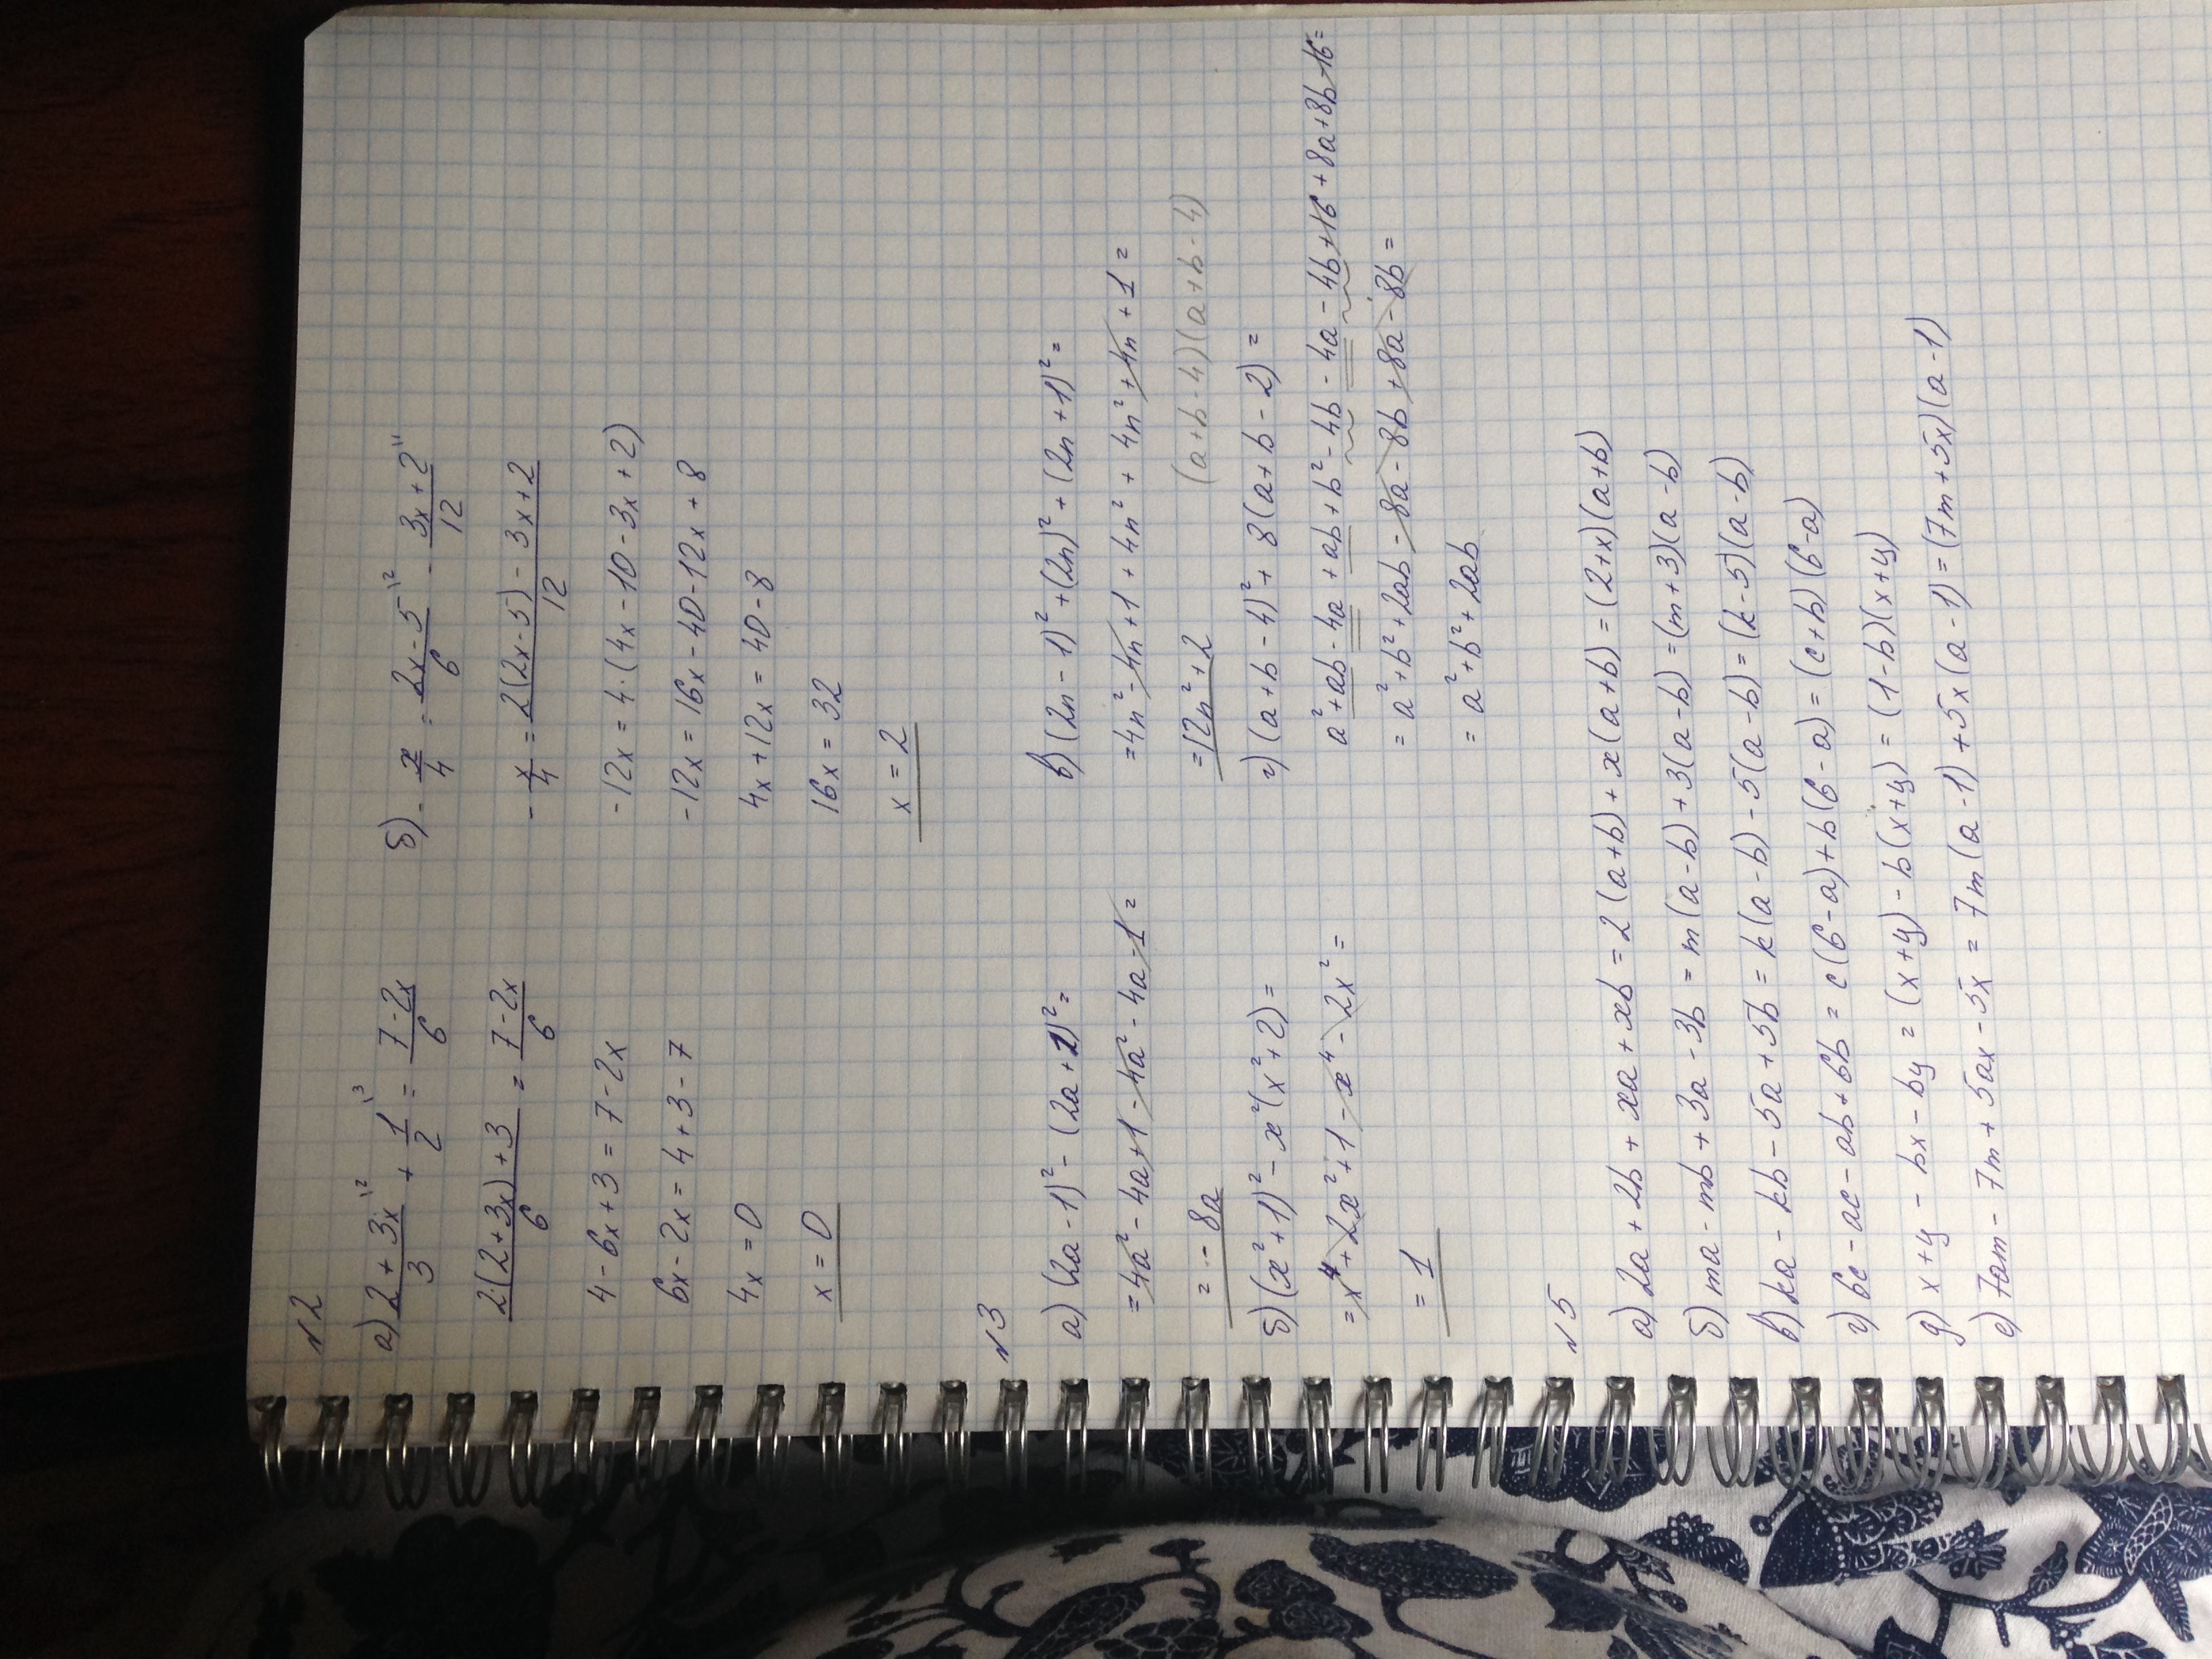 №2
а) (2 + 3x)/3 \2 + 1/2 \3 = (7 - 2x)/6
2(2 + 3x) + 3 / 6 = (7 - 2x)/6
4 - 6x + 3 = 7 - 2x
6x - 2x = 4 + 3 - 7
4x = 0
x = 0
б) - x/4 = (2x - 5)/6 \2 - (3x + 2)/12 \1
- x/4 = (2(2x - 5) - 3x + 2)/12
-12x = 4·(4x - 10 - 3x + 2)
-12x = 16x - 40 - 12x + 8
4x + 12x = 40 - 8
16x = 32
x = 2
№3
а) (2a - 1)² - (2a + 1)² =
= 4a² - 4a + 1 - 4a² - 4a - 1 =
= - 8a
б) (x² + 1)² - x²(x² + 2) =
= x⁴ + 2x² + 1 - x⁴ - 2x² =
= 1
в) (2n - 1)² + (2n)² + (2n + 1)² =
= 4n² - 4n + 1 + 4n² + 4n² + 4n + 1 =
= 12n² + 2
(a + b - 4)(a + b - 4)
г) (a + b - 4)² + 8(a + b - 2) =
a² + ab - 4a + ab + b² - 4b - 4a - 4b + 16 + 8a + 8b - 16 =
= a² + b² + 2ab - 8a - 8b + 8a - 8b =
= a² + b² + 2ab
№5
а) 2a + 2b + xa + xb = 2(a + b) + x(a + b) = (2 + x)(a + b)
б) ma - mb + 3a - 3b = m(a - b) + 3(a - b) = (m + 3)(a - b)
в) ka - kb - 5a + 5b = k(a - b) - 5(a - b) = (k - 5)(a - b)
г) 6c - ac - ab + 6b = c(6 - a) + b(6 - a) = (c + b)(6 - a)
д) x + y - bx - by = (x + y) - b(x + y) = (1 - b)(x + y)
е) 7am - 7m + 5ax - 5x = 7m(a - 1) + 5x(a - 1) = (7m + 5x)(a - 1)